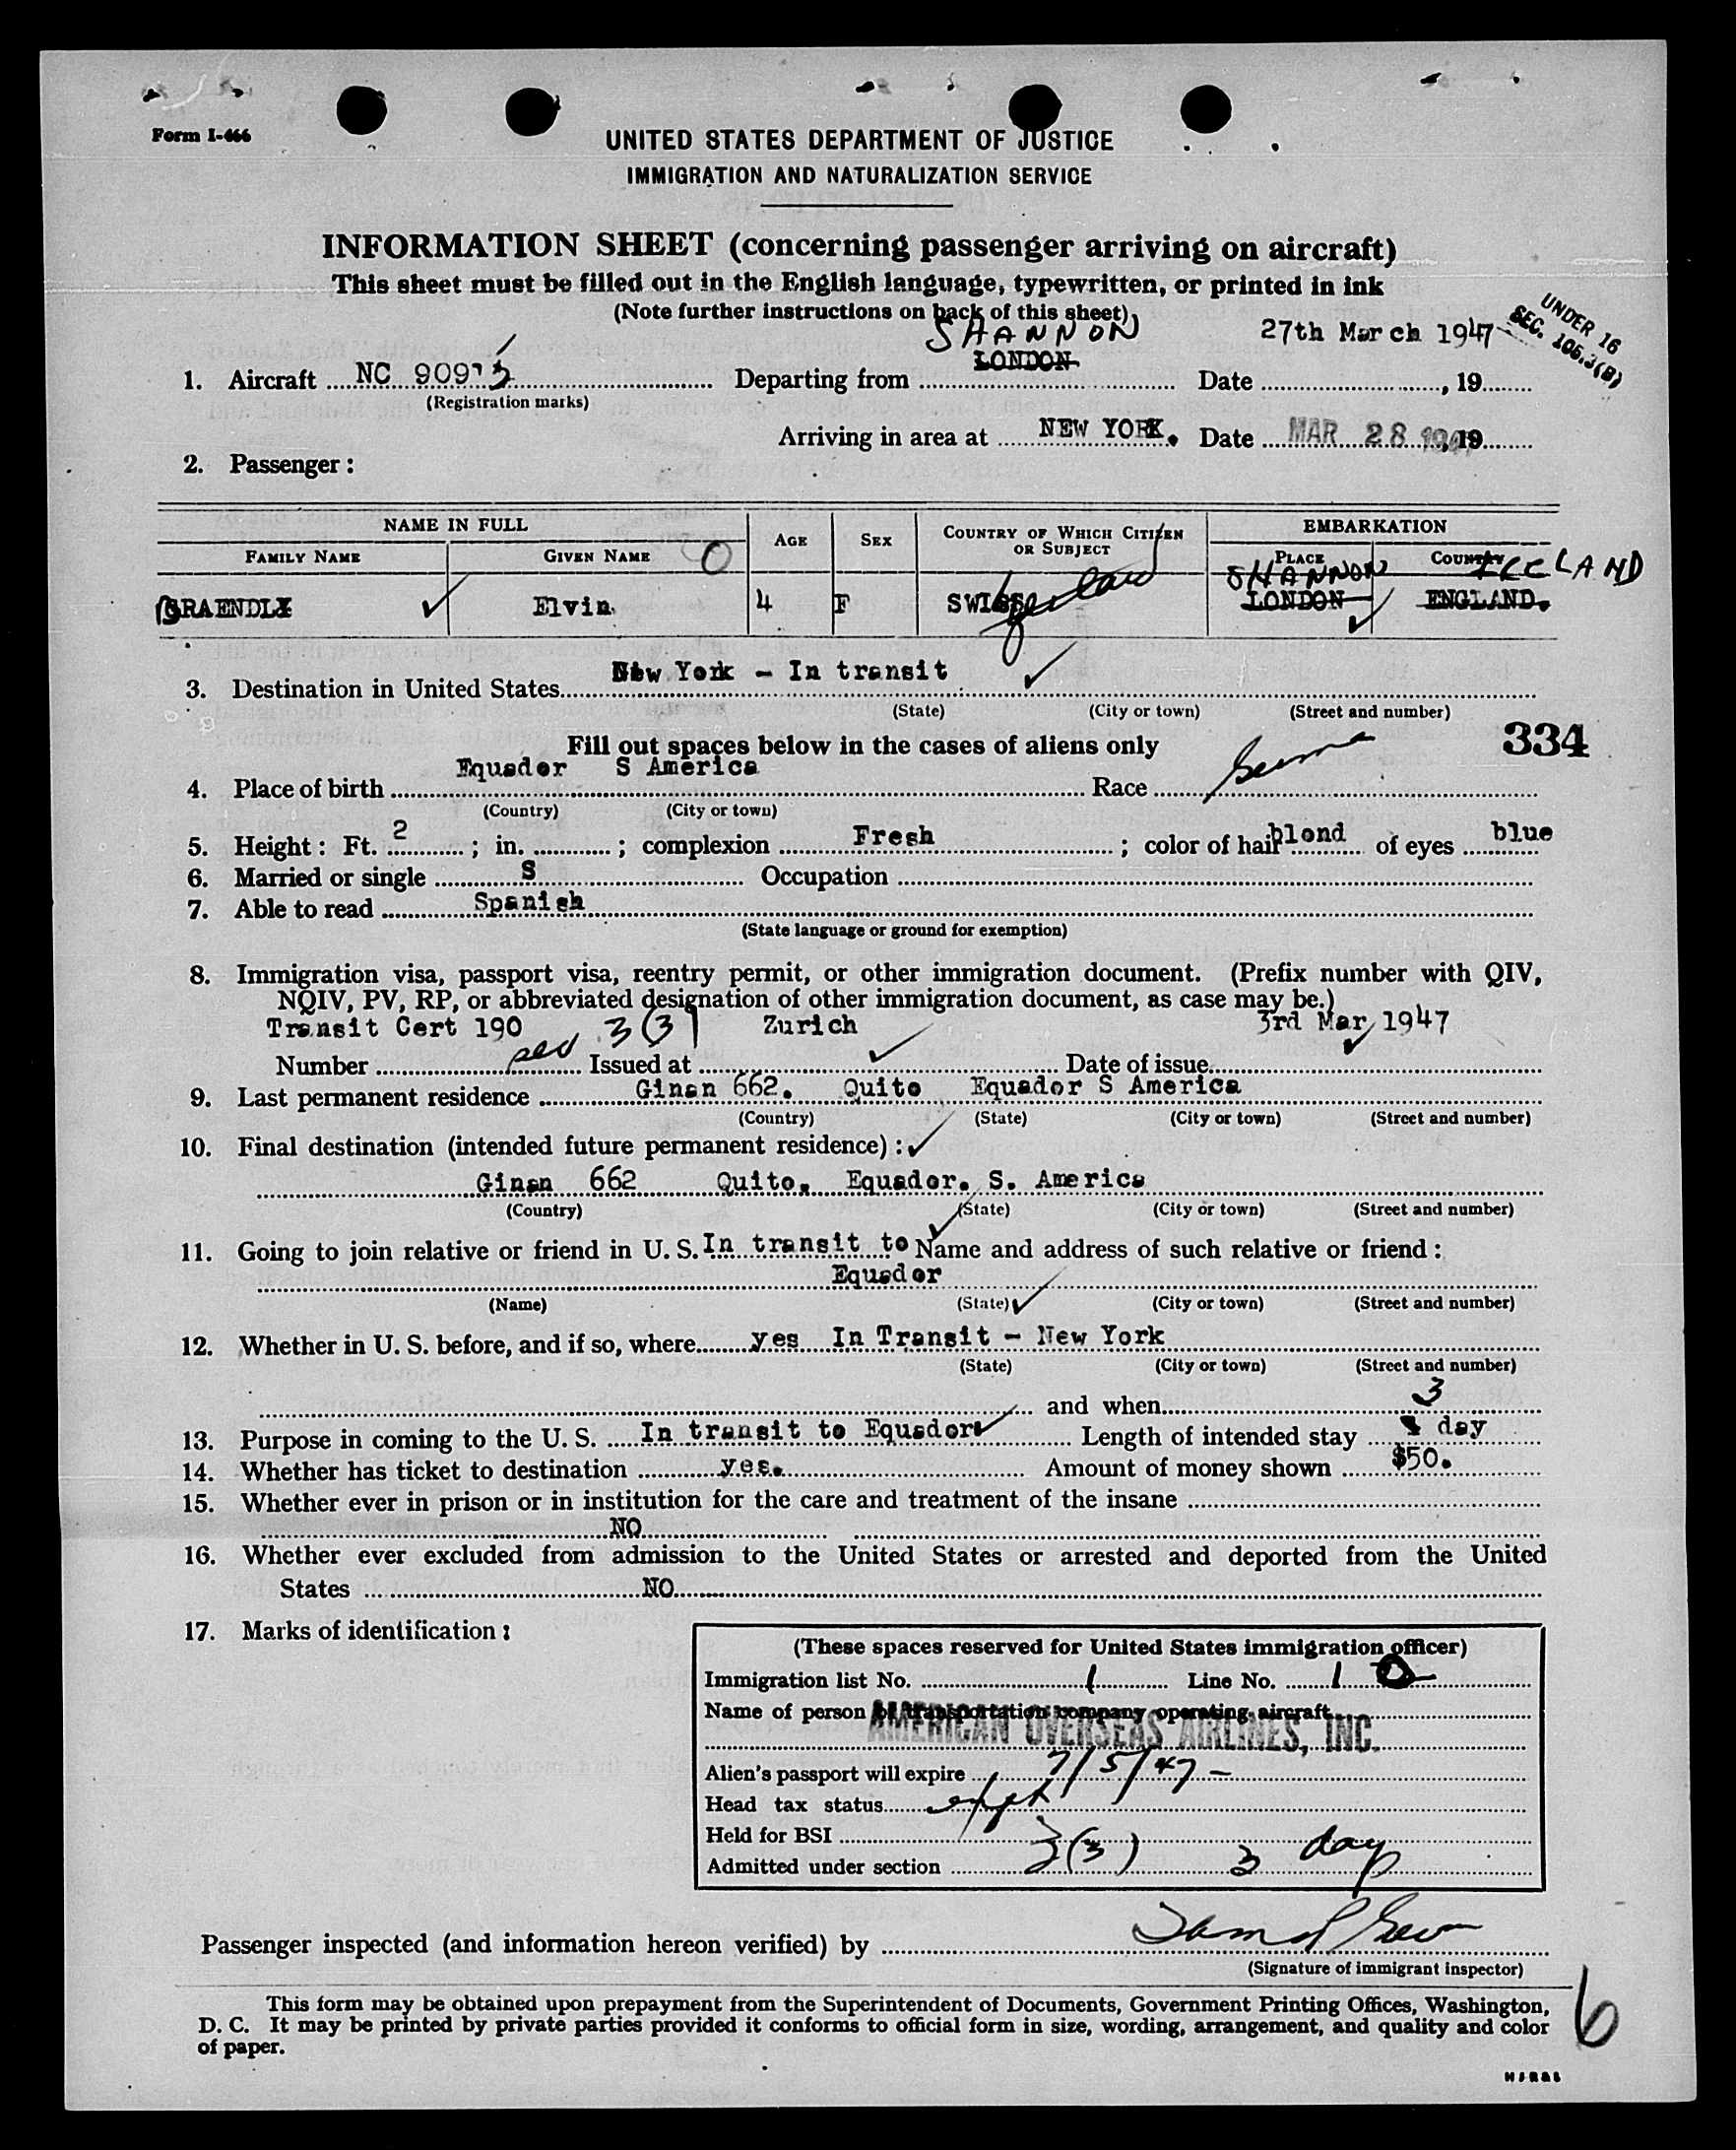 Form I-466
UNITED STATES DEPARTMENT OF JUSTICE
IMMIGRATION AND NATURALIZATION SERVICE
INFORMATION SHEET (concerning passenger arriving on aircraft)
This sheet must be filled out in the English language, typewritten, or printed in ink
(Note further instructions on back of this sheet)
UNDER 16
SEC. 106.3(B)
SHANNON
27th March 1947
1. Aircraft NC 90915 Departing from LONDON Date , 19
(Registration marks)
Arriving in area at NEW YORK. Date MAR 28 1947, 19
2. Passenger:
NAME IN FULL AGE SEX COUNTRY OF WHICH CITIZEN OR SUBJECT EMBARKATION
FAMILY NAME GIVEN NAME PLACE COUNTRY
SHANNON
GRAENDLI Elvin. 4 F SWISS LONDON ENGLAND.
3. Destination in United States New York - In transit
(State) (City or town) (Street and number)
334
Fill out spaces below in the cases of aliens only
4. Place of birth Equador S America Race
(Country) (City or town)
5. Height: Ft. 2 ; in. ; complexion Fresh ; color of hair blond of eyes blue
6. Married or single S Occupation
7. Able to read Spanish
(State language or ground for exemption)
8. Immigration visa, passport visa, reentry permit, or other immigration document. (Prefix number with QIV,
NQIV, PV, RP, or abbreviated designation of other immigration document, as case may be.)
Transit Cert 190 3(3) Zurich 3rd Mar 1947
Number Issued at Date of issue
9. Last permanent residence Ginan 662. Quito Equador S America
(Country) (State) (City or town) (Street and number)
10. Final destination (intended future permanent residence):
Ginan 662 Quito, Equador. S. America
(Country) (State) (City or town) (Street and number)
11. Going to join relative or friend in U. S. In transit to Name and address of such relative or friend:
Equador
(Name) (State) (City or town) (Street and number)
12. Whether in U. S. before, and if so, where yes In Transit - New York
(State) (City or town) (Street and number)
and when
3
13. Purpose in coming to the U. S. In transit to Equador Length of intended stay day
14. Whether has ticket to destination yes. Amount of money shown $50.
15. Whether ever in prison or in institution for the care and treatment of the insane
NO
16. Whether ever excluded from admission to the United States or arrested and deported from the United
States NO
17. Marks of identification:
(These spaces reserved for United States immigration officer)
Immigration list No. 1 Line No. 1
Name of person or transportation company operating aircraft
AMERICAN OVERSEAS AIRLINES, INC.
Alien's passport will expire 7/5/47
Head tax status
Held for BSI
Admitted under section 3(3) 3 day
Passenger inspected (and information hereon verified) by
(Signature of immigrant inspector)
This form may be obtained upon prepayment from the Superintendent of Documents, Government Printing Offices, Washington,
D. C. It may be printed by private parties provided it conforms to official form in size, wording, arrangement, and quality and color
of paper.
6